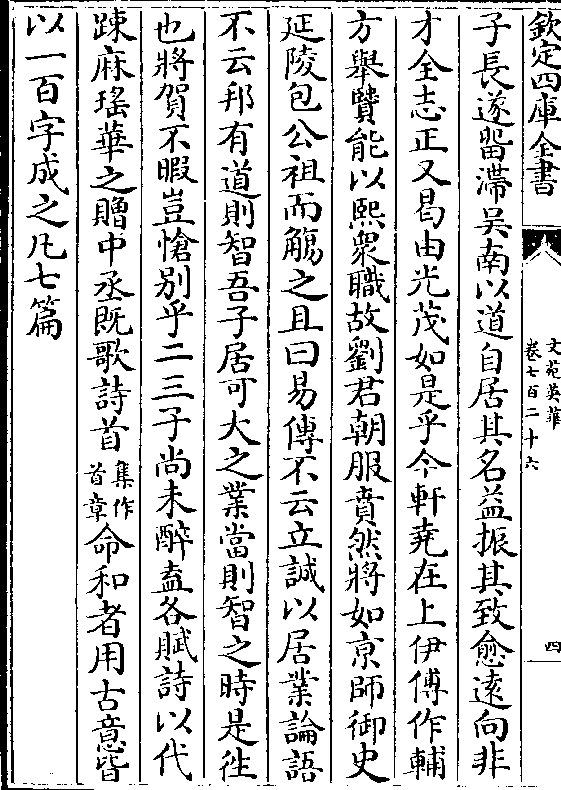 欽定四庫全書
文苑英華
卷七百二十六
四
子長遂留滯吳南以道自居其名益振其致愈遠向非
才全志正又曷由光茂如是乎今軒堯在上伊傅作輔
方舉賢能以熙衆職故劉君朝服賁然將如京師御史
延陵包公祖而觴之且曰易傳不云立誠以居業論語
不云邦有道則智吾子居可大之業當則智之時是往
也將賀不暇豈愴别乎二三子尚未醉盍各賦詩以代
踈麻瑤華之贈中丞既歌詩首集作首章命和者用古意皆
以一百字成之凡七篇